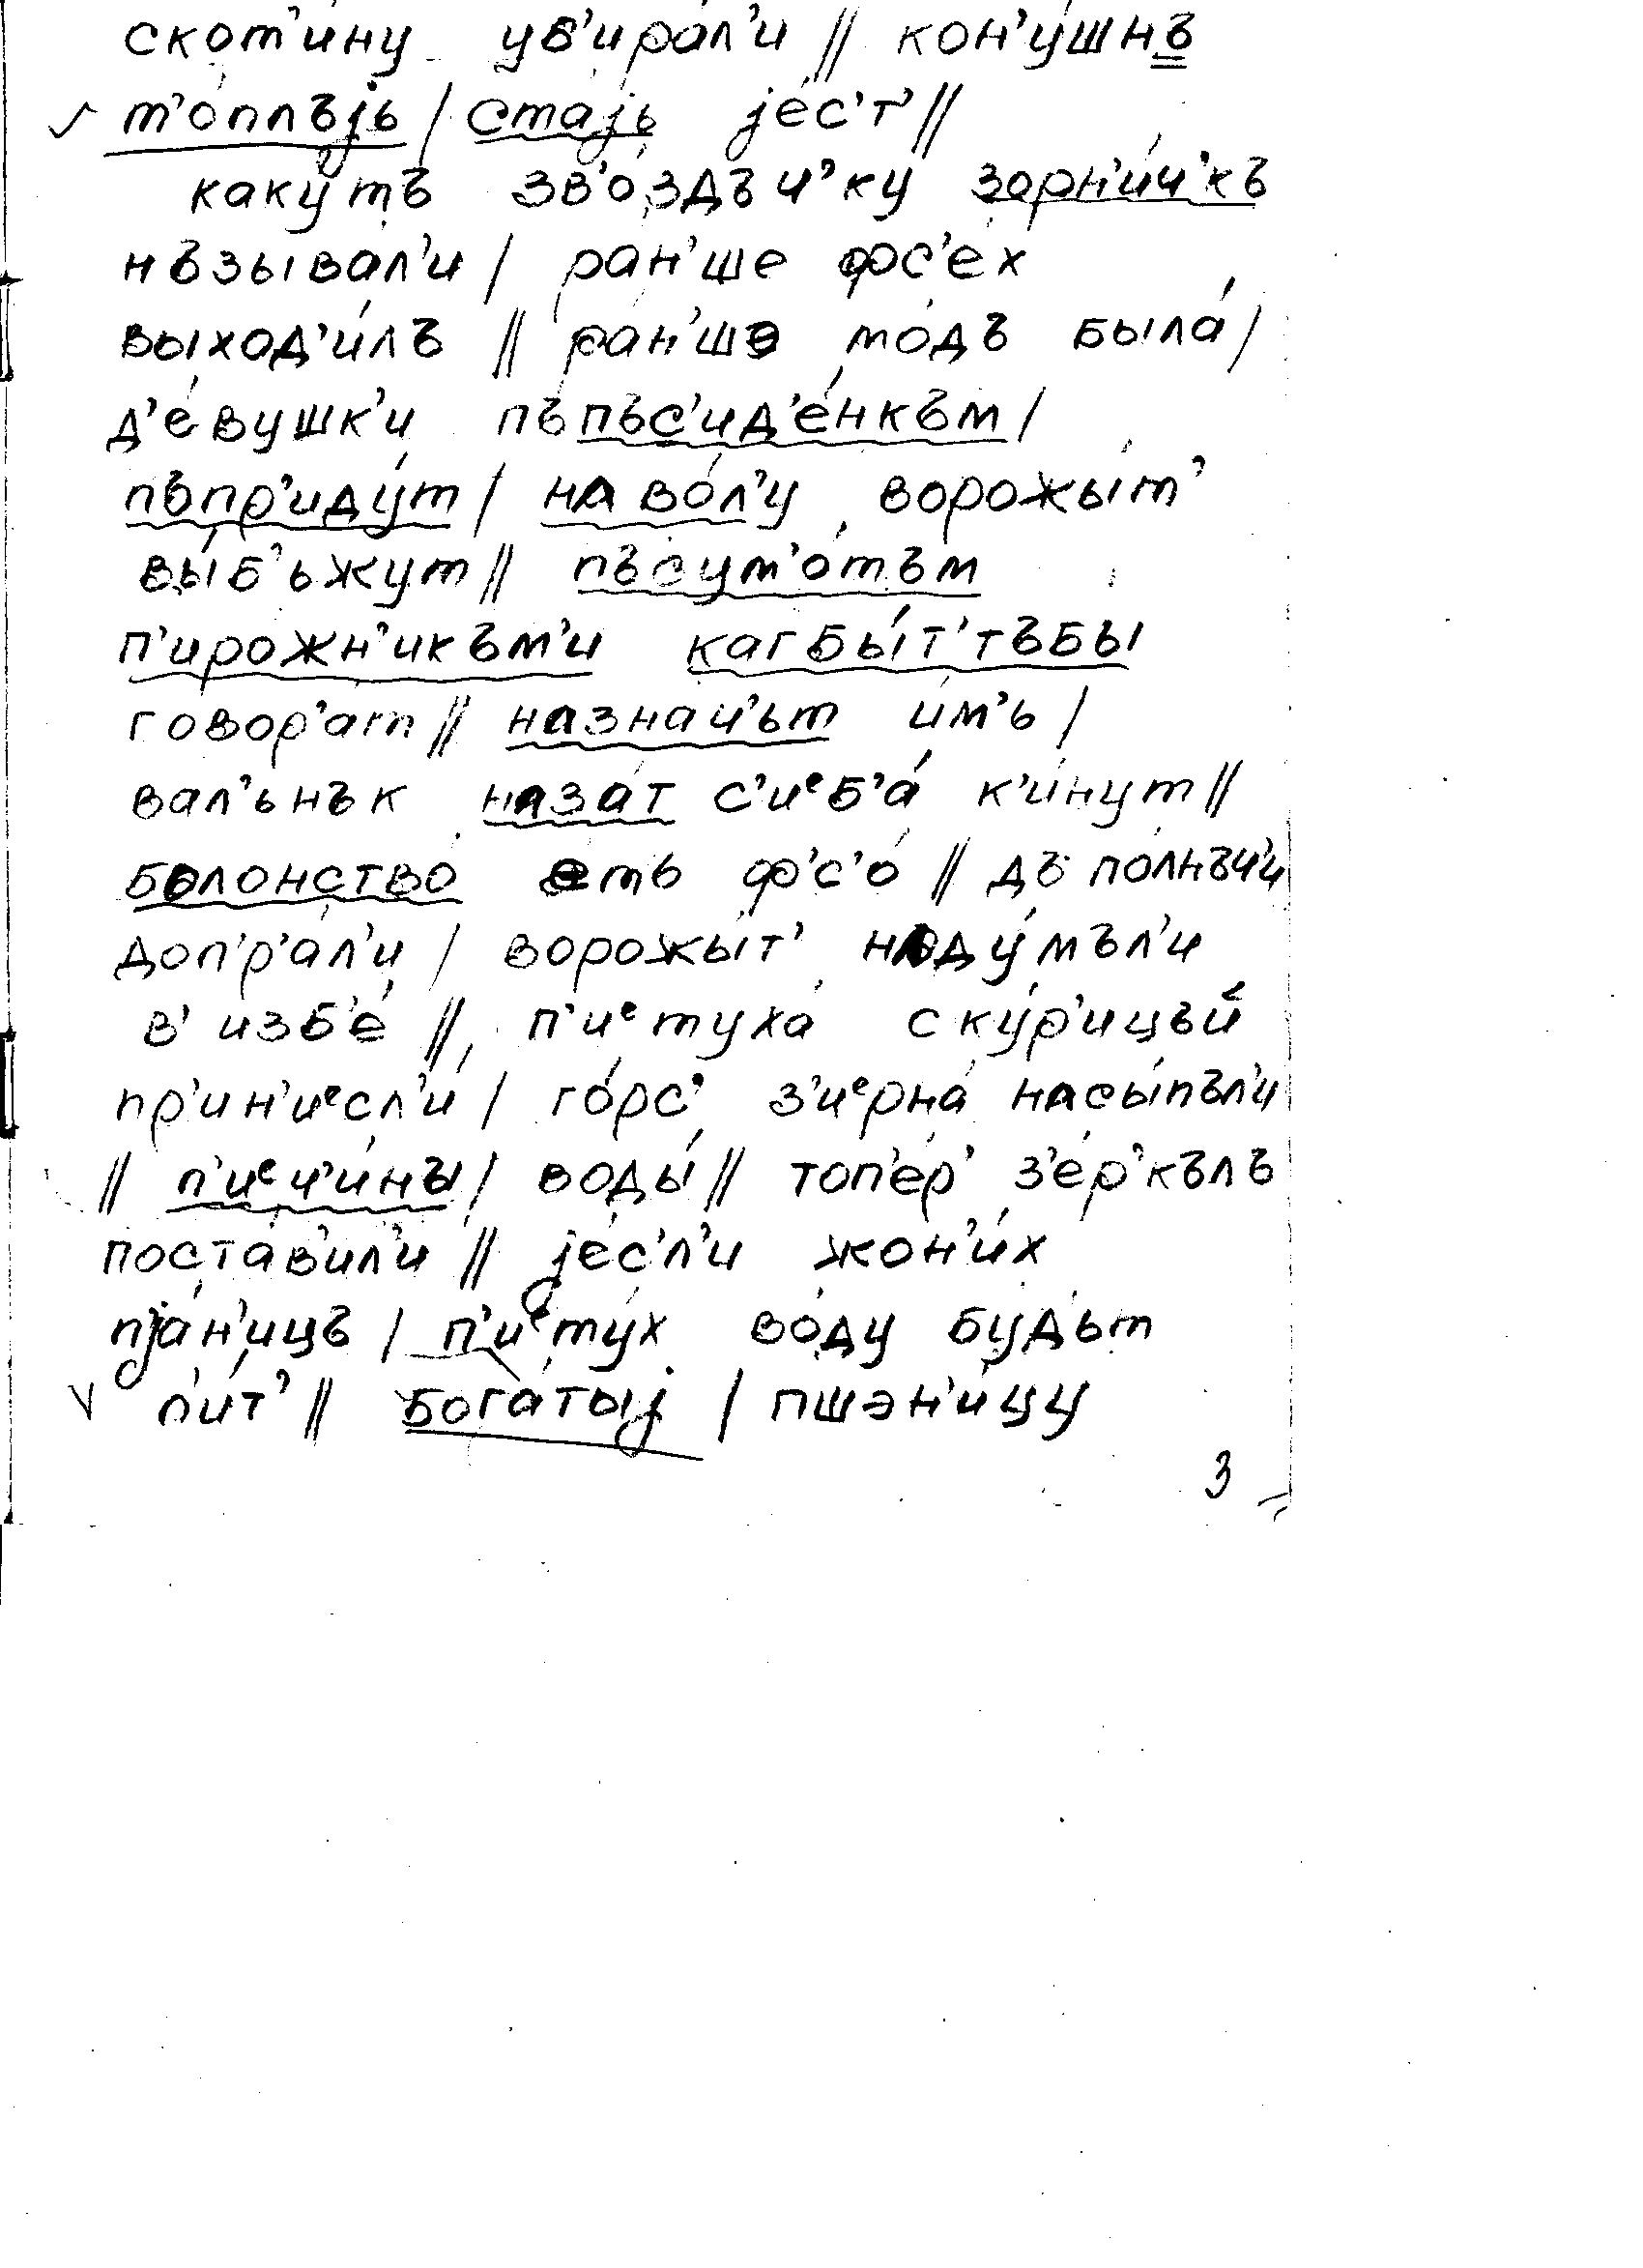 скот'и́ну ув'ира́л'и // кон'у́шнъ
т'о́плъjь / ста́jь jе́с'т' //
каку́тъ зв'о́здъч'ку зорн'и́ч'къ
нъзыва́л'и / ра́н'ше фс'е́х
выход'и́лъ // ра́н'шэ мо́дъ была́ /
д'е́вушк'и пъпъс'ид'е́нкъм /
пъпр'иду́т / на во́л'у ворожы́т'
вы́б'ьжут // пъсум'о́тъм
п'иро́жн'икъм'и кагбы́т'тъбы
говор'а́т // назна́ч'ьт и́м'ь /
вал'ьнък наза́т с'иᵉб'а́ к'и́нут //
болонство этъ ф'с'о́ // дъ по́лнъч'и
доп'р'а́л'и / ворожы́т' наду́мъл'и
в' изб'е́ // п'иᵉтуха́ с ку́р'ицъй
пр'ин'иᵉсл'и́ / го́рс' з'иᵉрна́ насы́пъл'и
// п'иᵉч'и́ны / воды́ // топ'е́р' з'е́р'кълъ
поста́в'ил'и // jе́с'л'и жон'и́х
пjа́н'ицъ / п'иᵉту́х во́ду бу́дьт
п'и́т' // бога́тыj / пшэн'и́цу
3